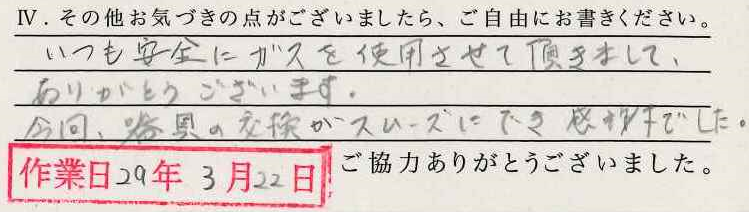 Ⅳ．その他お気づきの点がございましたら、ご自由にお書きください。
いつも安全にガスを使用させて頂きまして、
ありがとうございます。
今回、器具の交換がスムーズにでき感謝でした。
作業日29年3月22日
ご協力ありがとうございました。